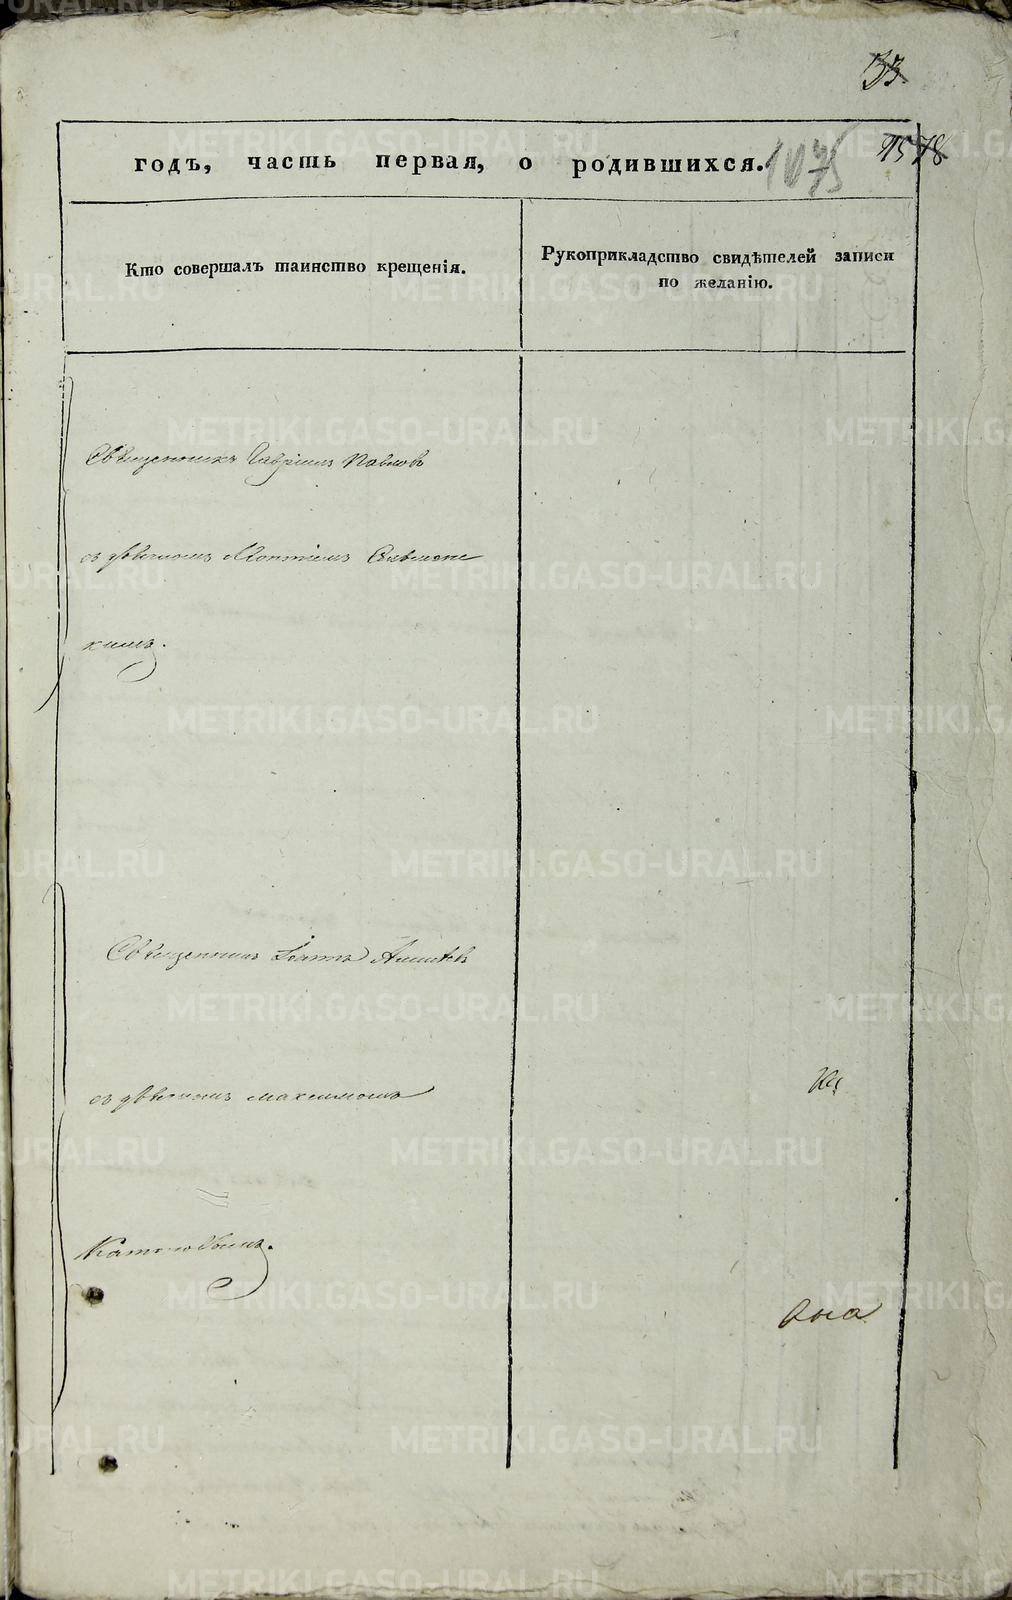 33
годъ, часть первая, о родившихся. 1075 1578
Кто совершалъ таинство крещенія.
Рукоприкладство свидѣтелей записи
по желанію.
Священникъ Гавріилъ Павловъ
съ дьячкомъ
кимъ.
Священникъ Іоаннъ
съ дьячкомъ Максимомъ
METRIKI.GASO-URAL.RU